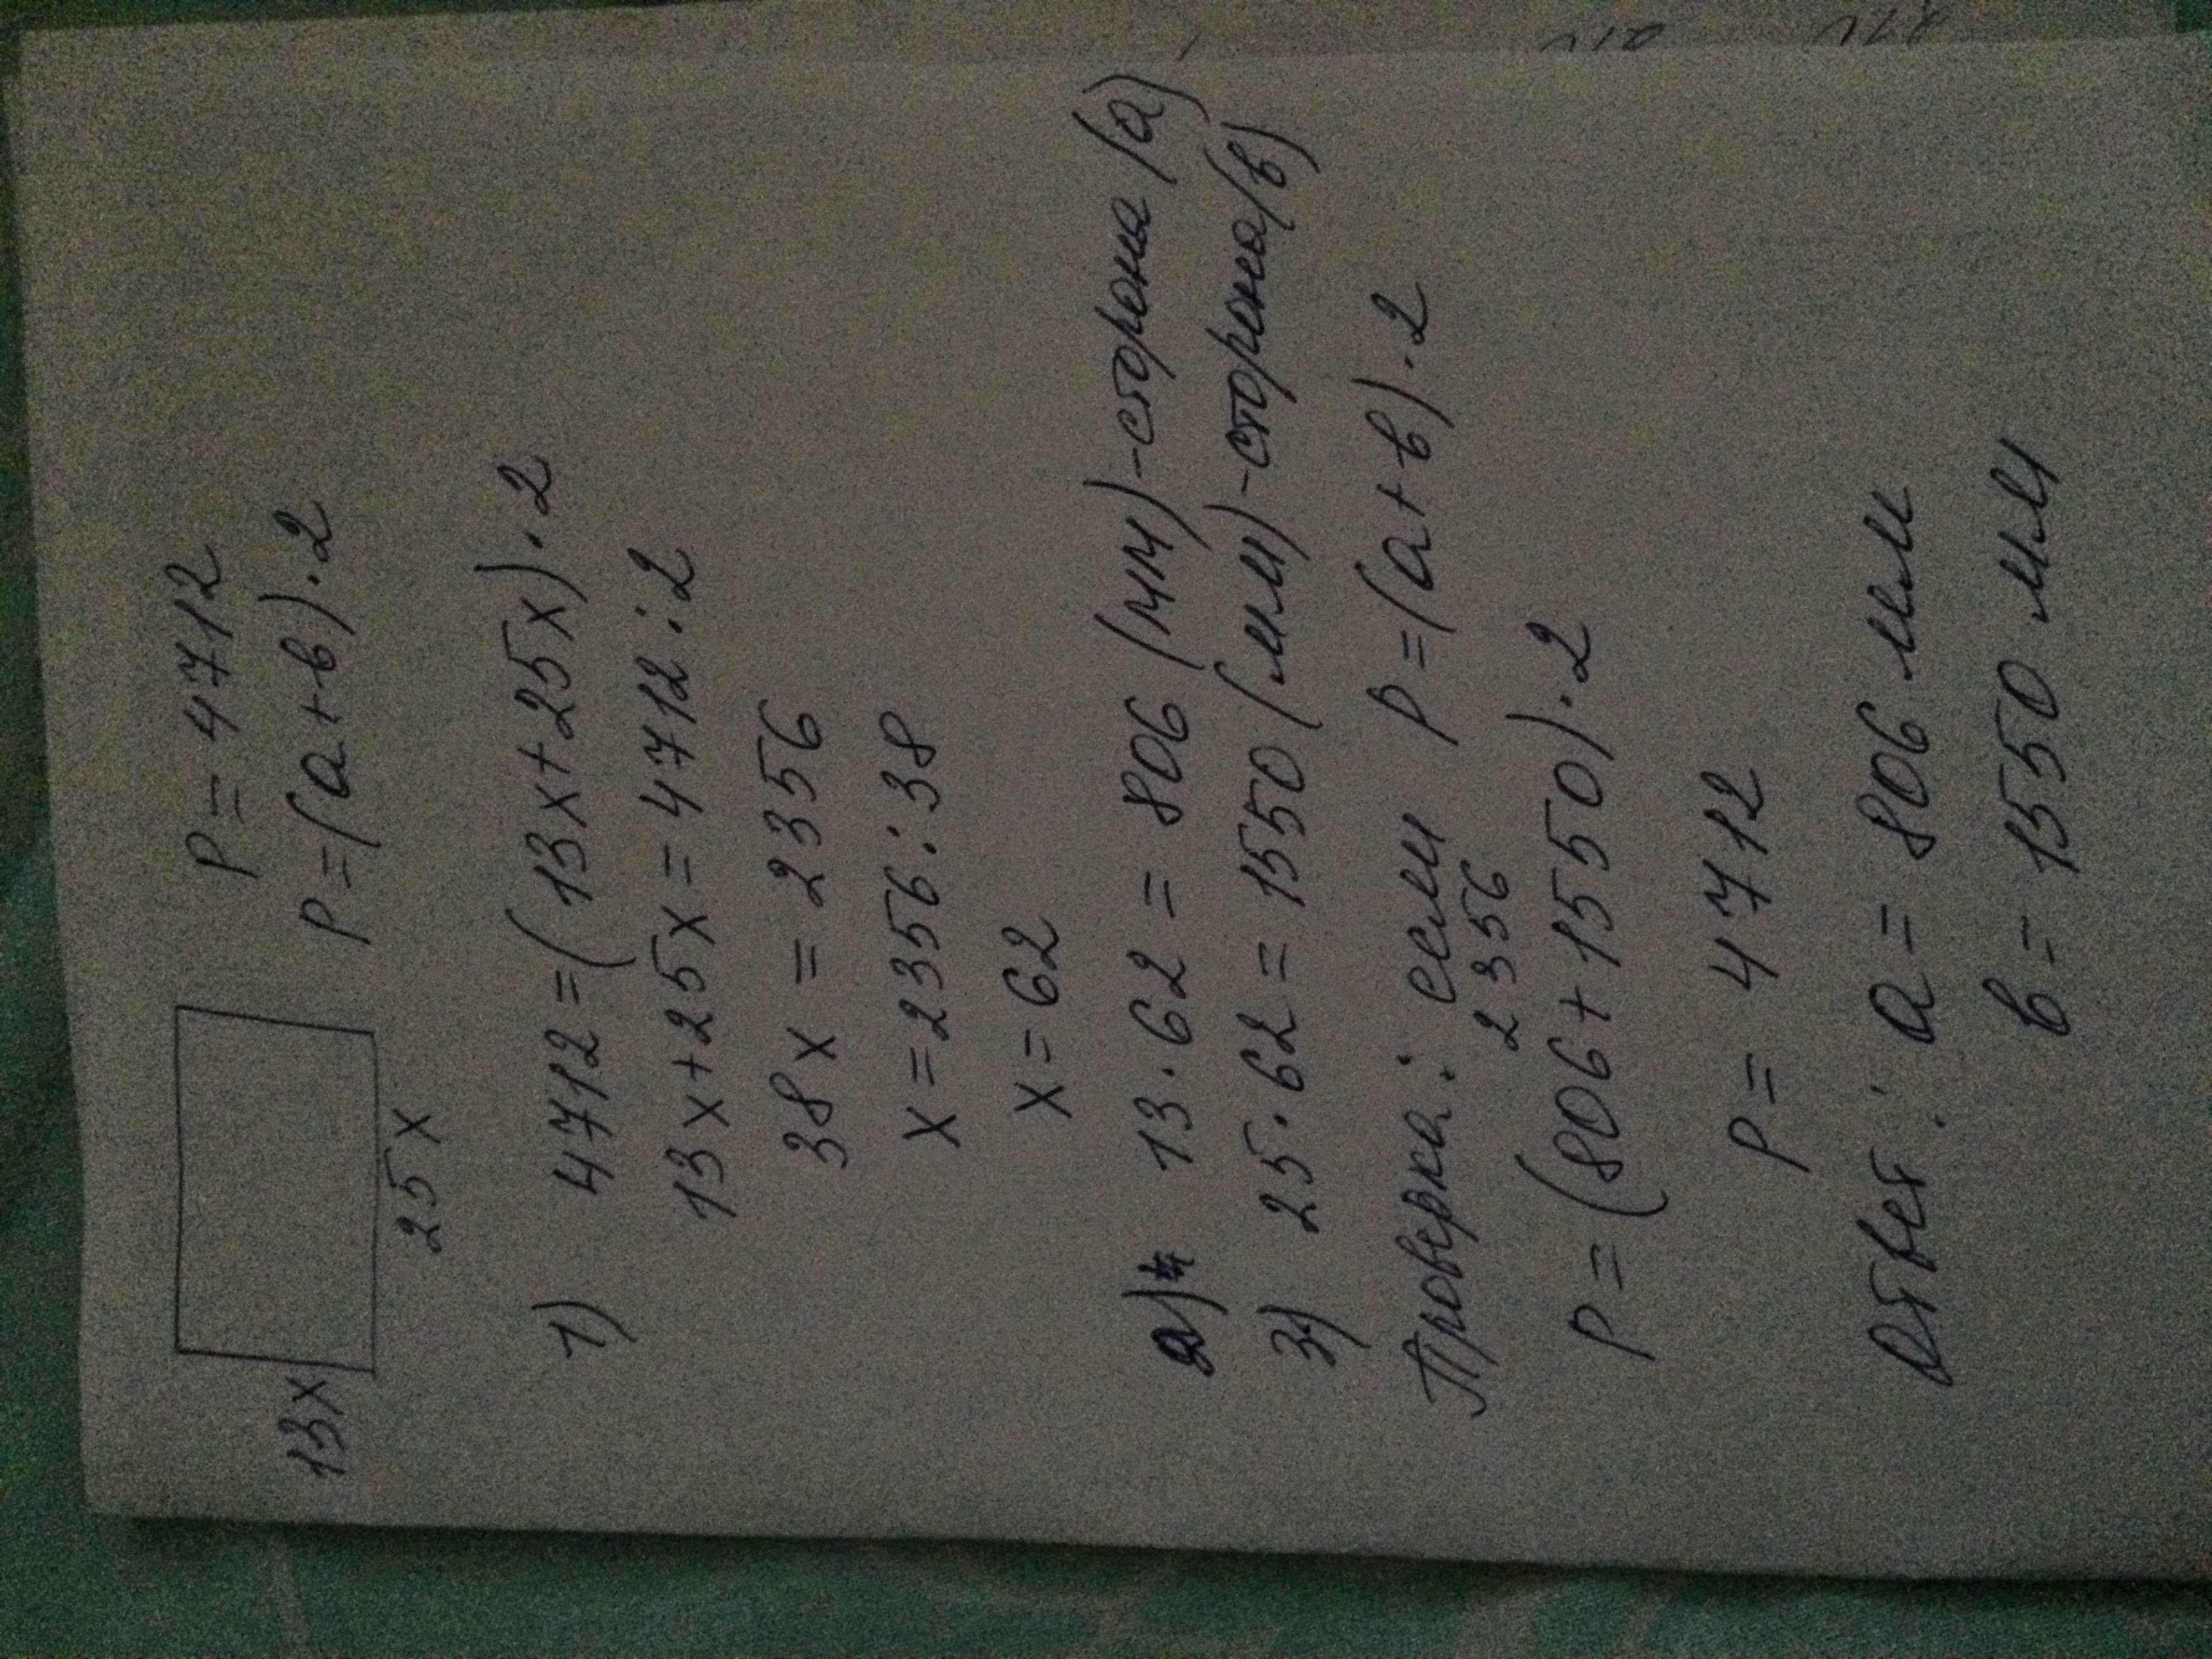 13x
25x
P = 4712
P = (a+в)·2
1) 4712 = (13x+25x)·2
13x+25x = 4712:2
38x = 2356
x = 2356:38
x = 62
2) 13·62 = 806 (мм)-сторона (a)
3) 25·62 = 1550 (мм)-сторона (в)
Проверка: если P = (a+в)·2
2356
P = (806+1550)·2
P = 4712
Ответ: a = 806 мм
в = 1550 мм